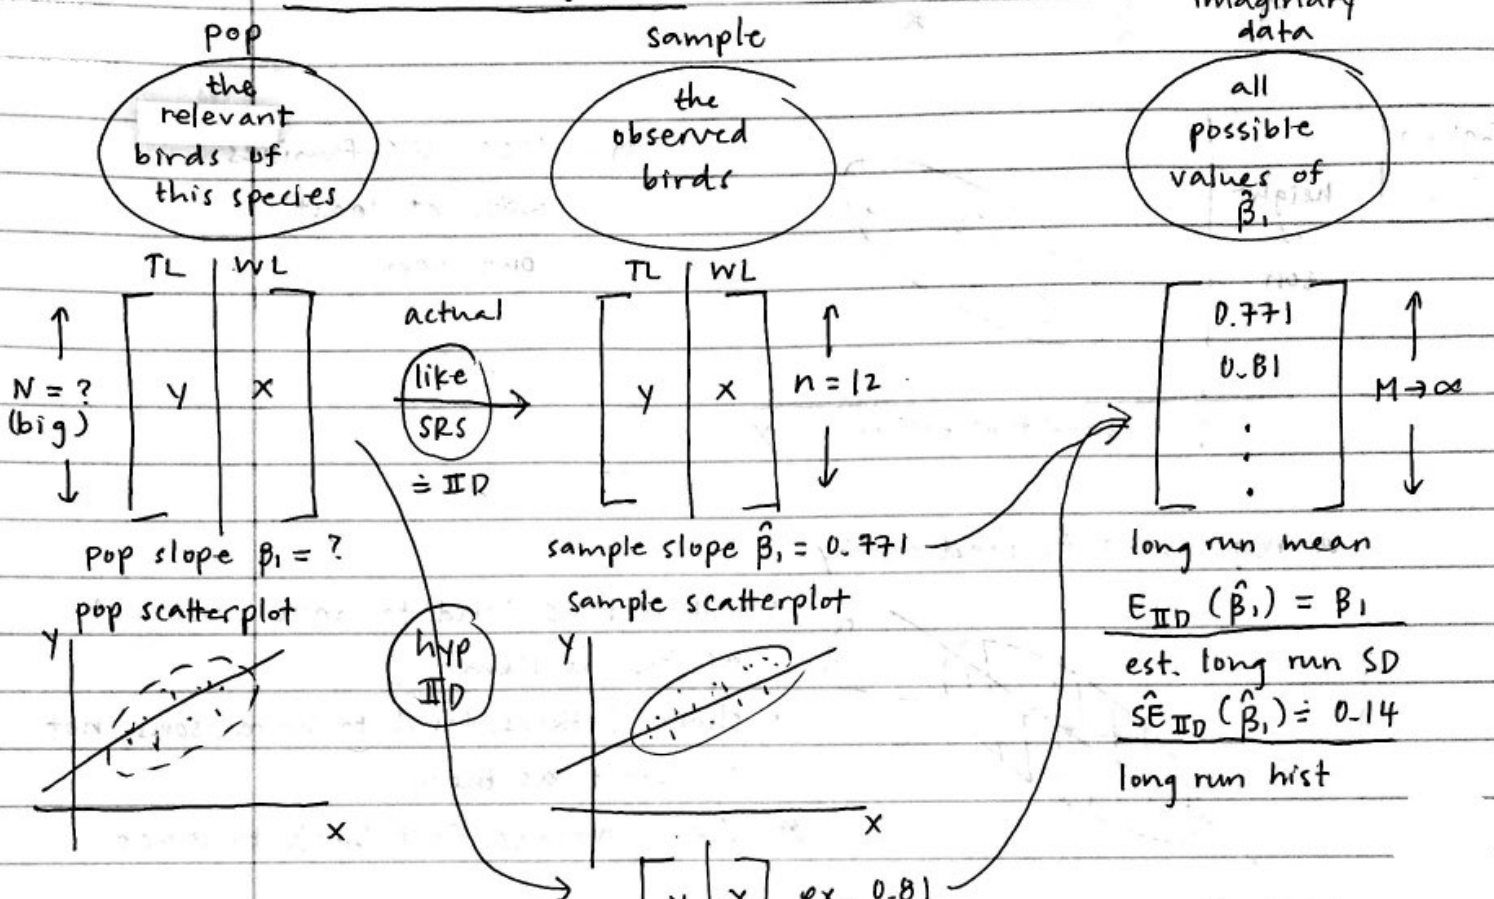 pop
the
relevant
birds of
this species
TL | WL
N = ?
(big)
y
x
pop slope β₁ = ?
pop scatterplot
y
x
actual
like
SRS
≐ IID
hyp
IID
sample
the
observed
birds
TL | WL
y
x
n = 12
sample slope β̂₁ = 0.771
sample scatterplot
y
x
y | x ex. 0.81
imaginary
data
all
possible
values of
β̂₁
0.771
0.81
.
.
.
M → ∞
long run mean
E_IID (β̂₁) = β₁
est. long run SD
ŜE_IID (β̂₁) ≐ 0.14
long run hist